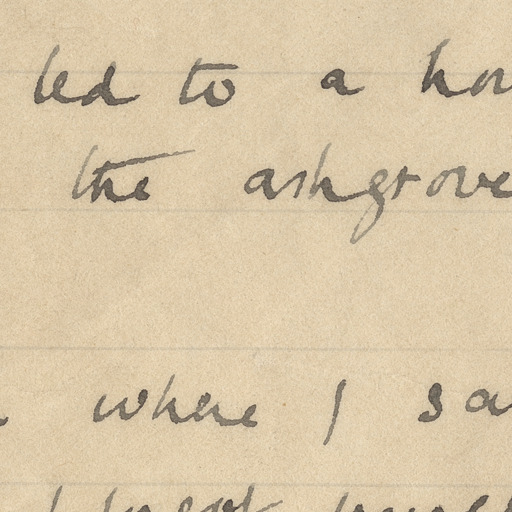 led to a hou
the ashgrove
where I sa